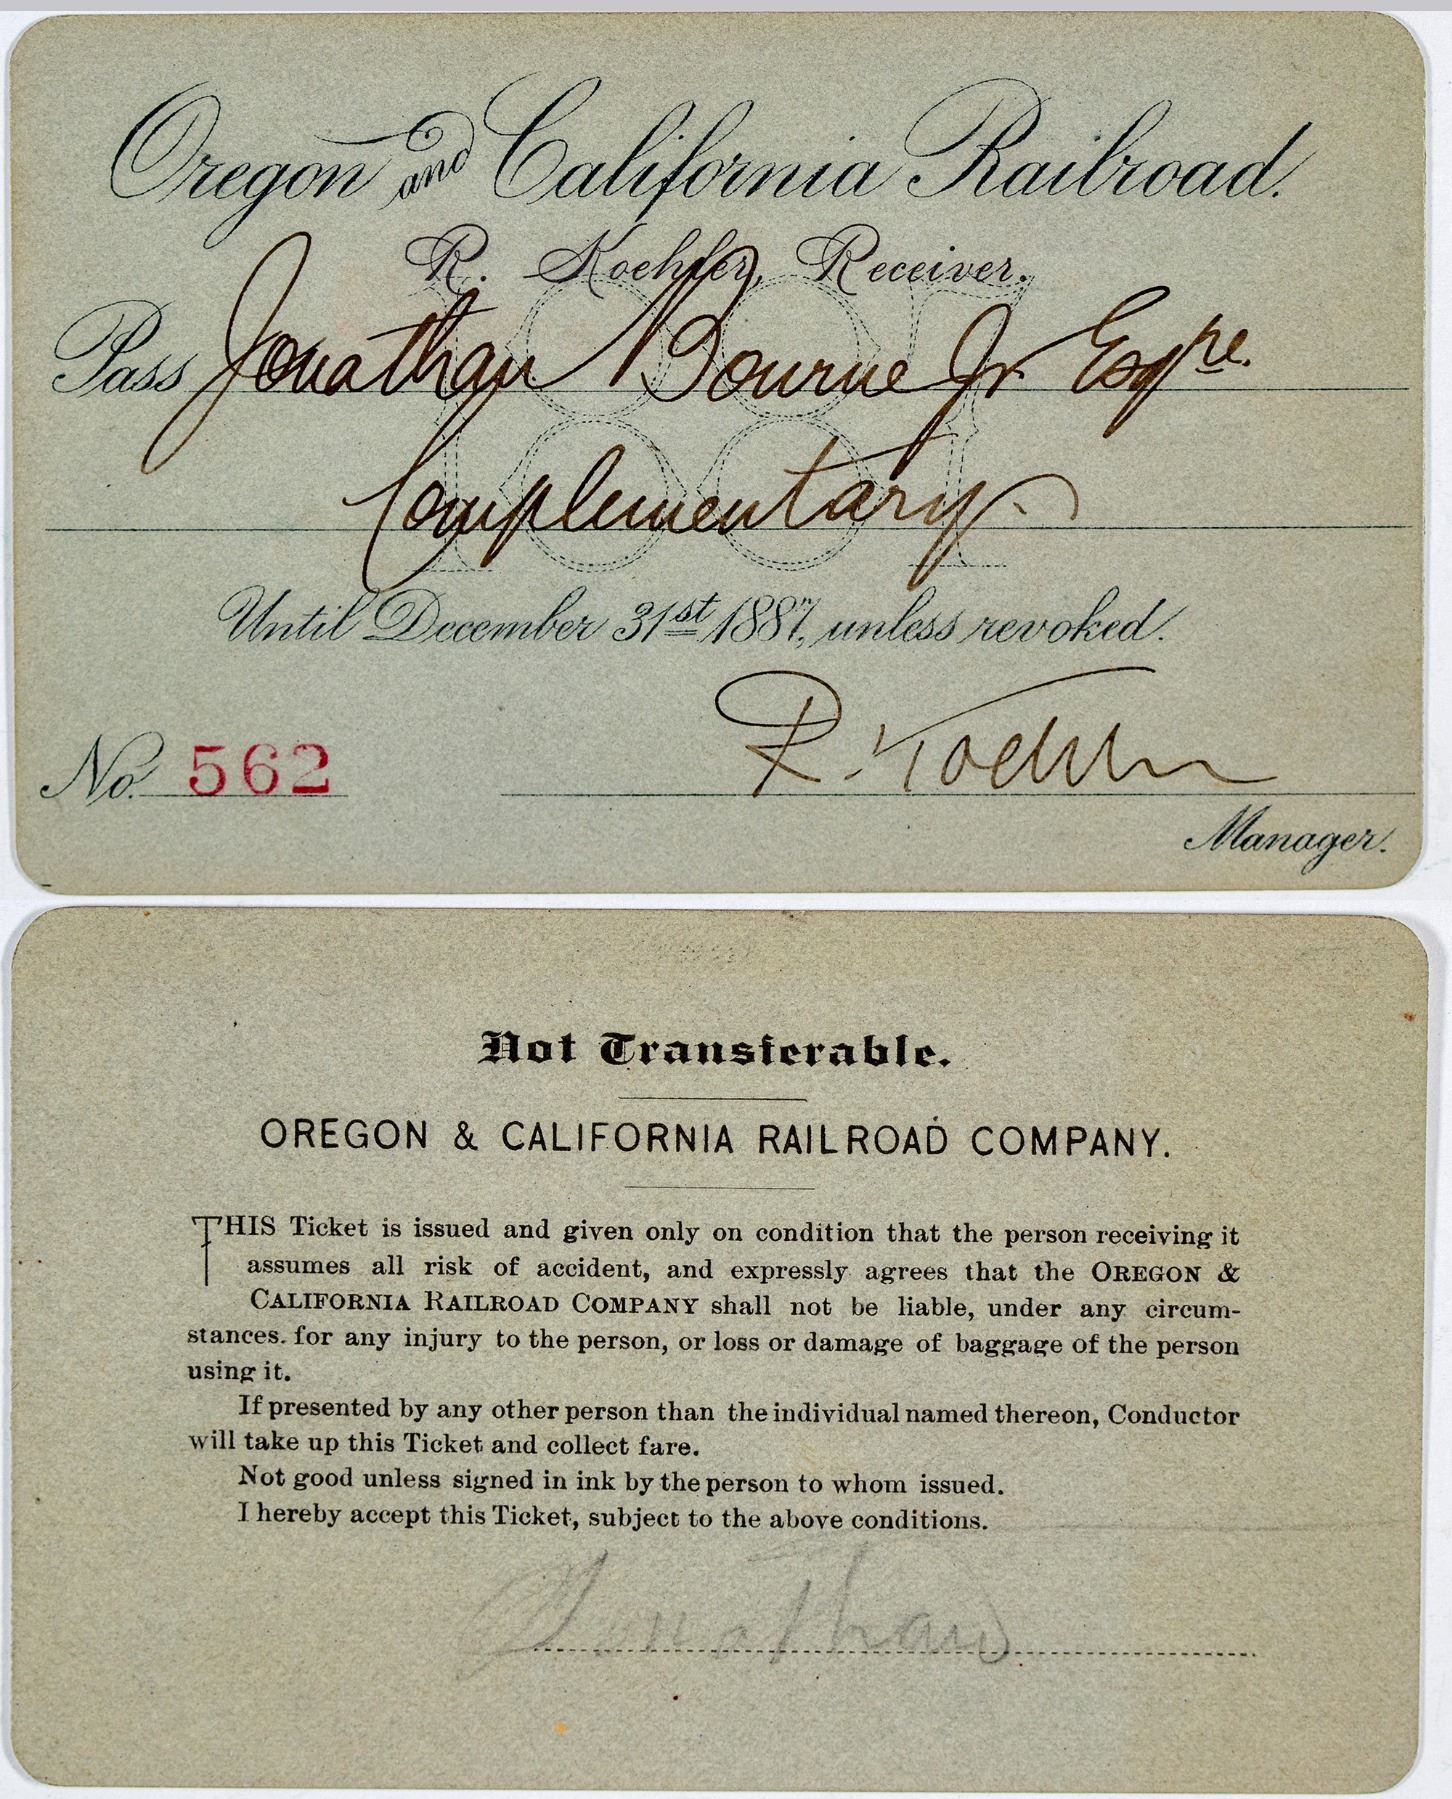 Oregon and California Railroad.
R. Koehler, Receiver.
1887
Pass Jonathan Bourne Jr Esqre.
Complementary.
Until December 31st 1887, unless revoked.
No. 562
R. Koehler
Manager.
Not Transferable.
OREGON & CALIFORNIA RAILROAD COMPANY.
THIS Ticket is issued and given only on condition that the person receiving it
assumes all risk of accident, and expressly agrees that the OREGON &
CALIFORNIA RAILROAD COMPANY shall not be liable, under any circum-
stances. for any injury to the person, or loss or damage of baggage of the person
using it.
If presented by any other person than the individual named thereon, Conductor
will take up this Ticket and collect fare.
Not good unless signed in ink by the person to whom issued.
I hereby accept this Ticket, subject to the above conditions.
Jonathan